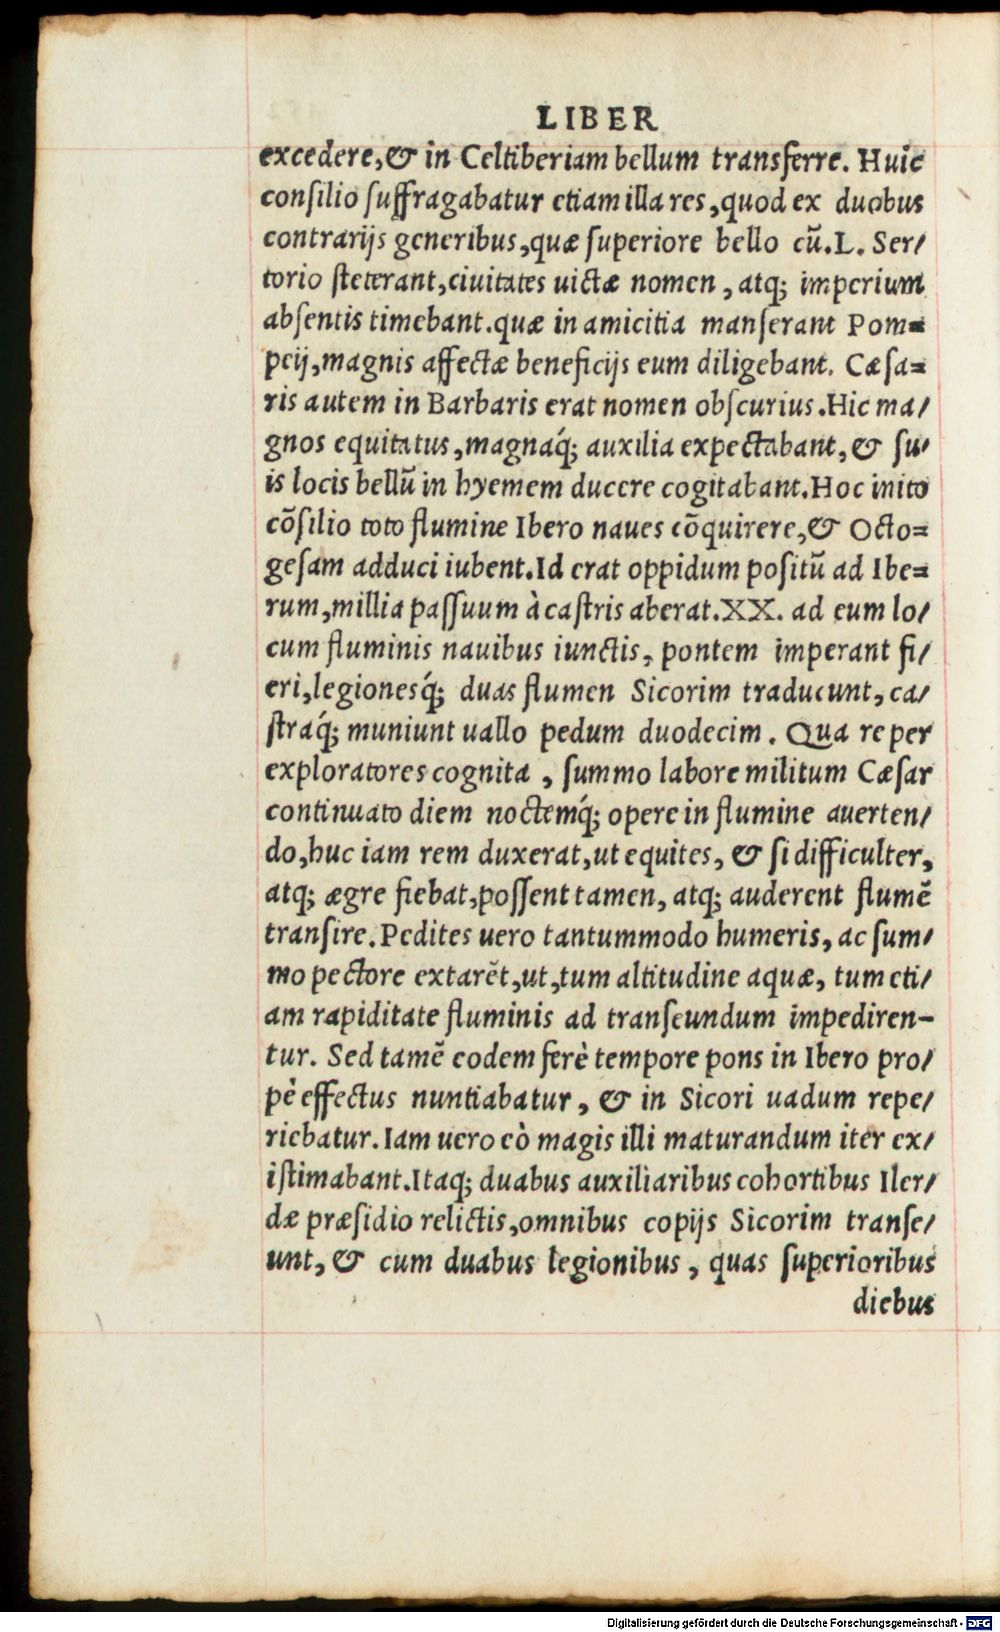 LIBER
excedere,& in Celtiberiam bellum transferre. Huic
consilio suffragabatur etiam illa res, quod ex duobus
contrarijs generibus, quæ superiore bello cũ. L. Ser/
torio steterant, ciuitates uictæ nomen, atq; imperium
absentis timebant. quæ in amicitia manserant Pom=
peij, magnis affectæ beneficijs eum diligebant. Cæsa=
ris autem in Barbaris erat nomen obscurius. Hic ma/
gnos equitatus, magnaq́; auxilia expectabant, & su/
is locis bellũ in hyemem ducere cogitabant. Hoc inito
cõsilio toto flumine Ibero naues cõquirere, & Octo=
gesam adduci iubent. Id erat oppidum positũ ad Ibe=
rum, millia passuum à castris aberat. XX. ad eum lo/
cum fluminis nauibus iunctis, pontem imperant fi/
eri, legionesq́; duas flumen Sicorim traducunt, ca/
straq́; muniunt uallo pedum duodecim. Qua re per
exploratores cognita, summo labore militum Cæsar
continuato diem noctemq́; opere in flumine auerten/
do, huc iam rem duxerat, ut equites, & si difficulter,
atq; ægre fiebat, possent tamen, atq; auderent flumẽ
transire. Pedites uero tantummodo humeris, ac sum/
mo pectore extarẽt, ut, tum altitudine aquæ, tum eti/
am rapiditate fluminis ad transeundum impediren-
tur. Sed tamẽ eodem ferè tempore pons in Ibero pro/
pè effectus nuntiabatur, & in Sicori uadum repe/
riebatur. Iam uero eò magis illi maturandum iter ex/
istimabant. Itaq; duabus auxiliaribus cohortibus Iler/
dæ præsidio relictis, omnibus copijs Sicorim transe/
unt, & cum duabus legionibus, quas superioribus
diebus
Digitalisierung gefördert durch die Deutsche Forschungsgemeinschaft - DFG